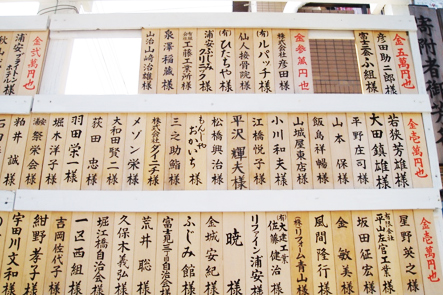 寄附者御芳
金五萬円也
彦田助二郎様
富士見小組様
金参萬円也
株式会社彦田様
(有)ルパッチ様
仙人接骨院様
(有)ひたちや様
浦安ゴムリメ様
有限会社工藤工業所様
泉澤稲蔵様
治山治雄様
金弐萬円也
浦安ブライトン様
金壱萬円也
若狭芳雄様
太田鎮雄様
平野庄司様
山本保様
飯島裕一様
山城屋東店様
小川和夫様
江橋悦子様
平沢輝夫様
松橋興治様
もんじゃおかいち様
三之助鮨様
株式会社グケイ子様
メゾン栄様
大和田賢二様
荻田忠様
羽田栄一様
堀木洋子様
浦祭栄会様
粕井誠様
金壱萬円也
星野英之様
有限会社平山左官工業様
坂田征宏様
金敏美様
風間隆行様
(株)リフォーム青山様
(有)大建工業佐藤健治様
リファイン浦安様
暁様
金城安紀様
ふじみ館様
富士見三丁目自治会様
荒井聡様
久保木義弘様
堀江橋自治会様
一区西組様
吉岡佐代子様
紺野孝子様
宇田川文和様